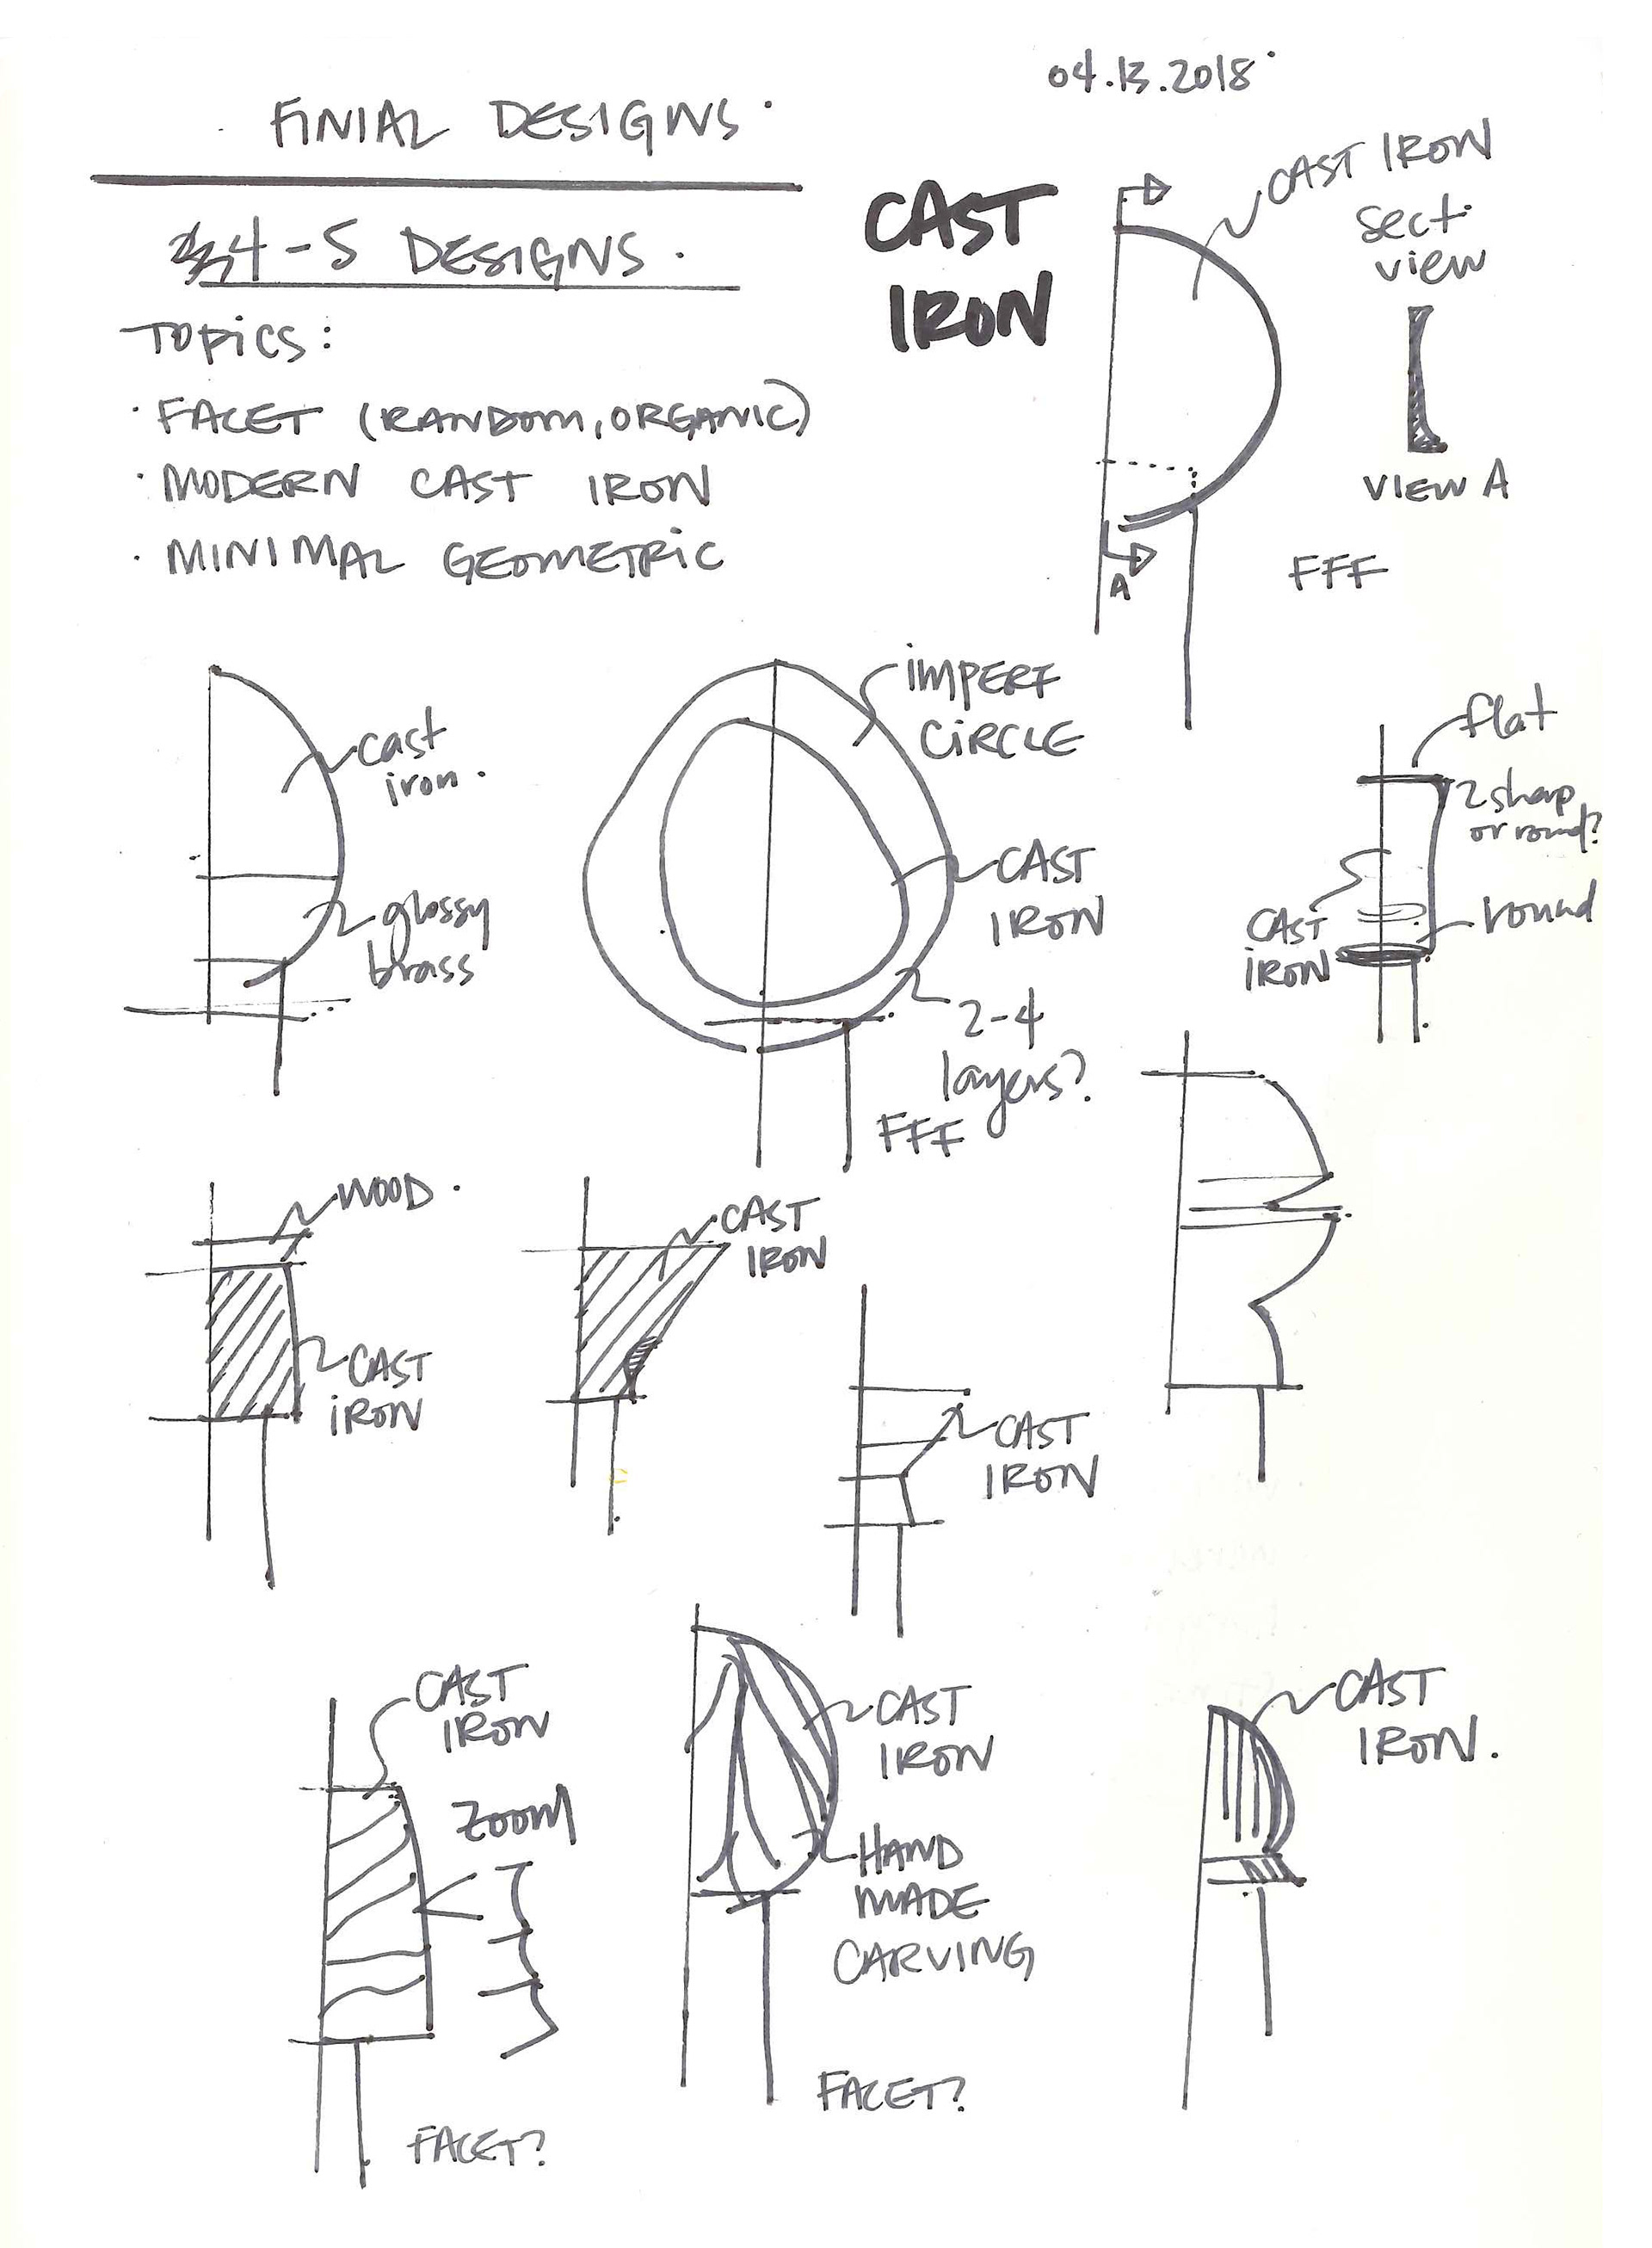 FINIAL DESIGNS.
04.13.2018
4-5 DESIGNS.
TOPICS:
· FACET (RANDOM, ORGANIC)
· MODERN CAST IRON
· MINIMAL GEOMETRIC
CAST
IRON
CAST IRON
sect
view
VIEW A
A
FFF
cast
iron.
glossy
brass
IMPERF
CIRCLE
CAST
IRON
2-4
layers?
FFF
flat
sharp
or round?
round
CAST
IRON
WOOD.
CAST
IRON
CAST
IRON
CAST
IRON
CAST
IRON
ZOOM
FACET?
CAST
IRON
HAND
MADE
CARVING
FACET?
CAST
IRON.